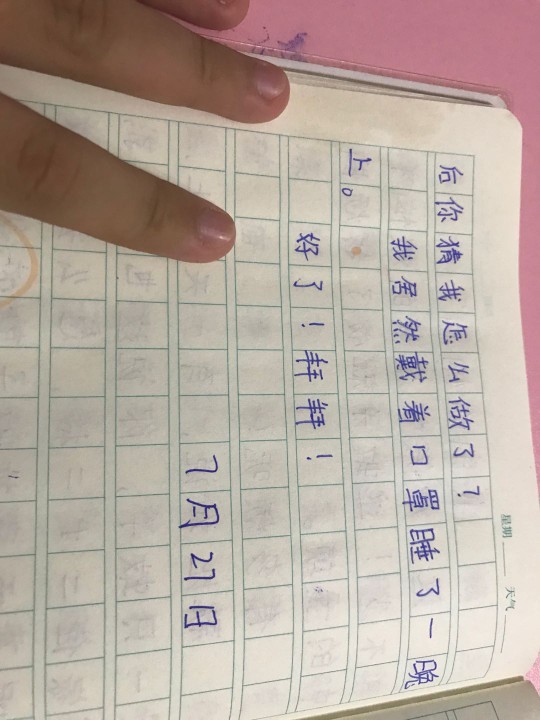 星期 天气
后你猜我怎么做了？
我居然戴着口罩睡了一晚
上。
好了！拜拜！
7月27日